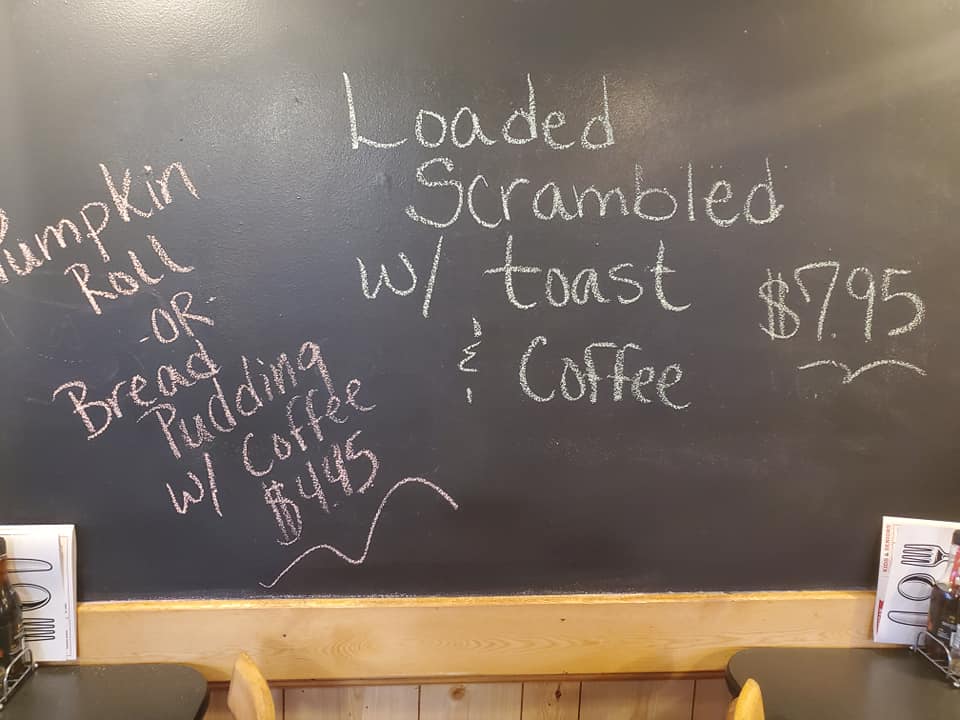 Pumpkin
Roll
-OR-
Bread
Pudding
w/ Coffee
$4.95
Loaded
Scrambled
w/ toast
& Coffee
$7.95
KIDS & SENIORS